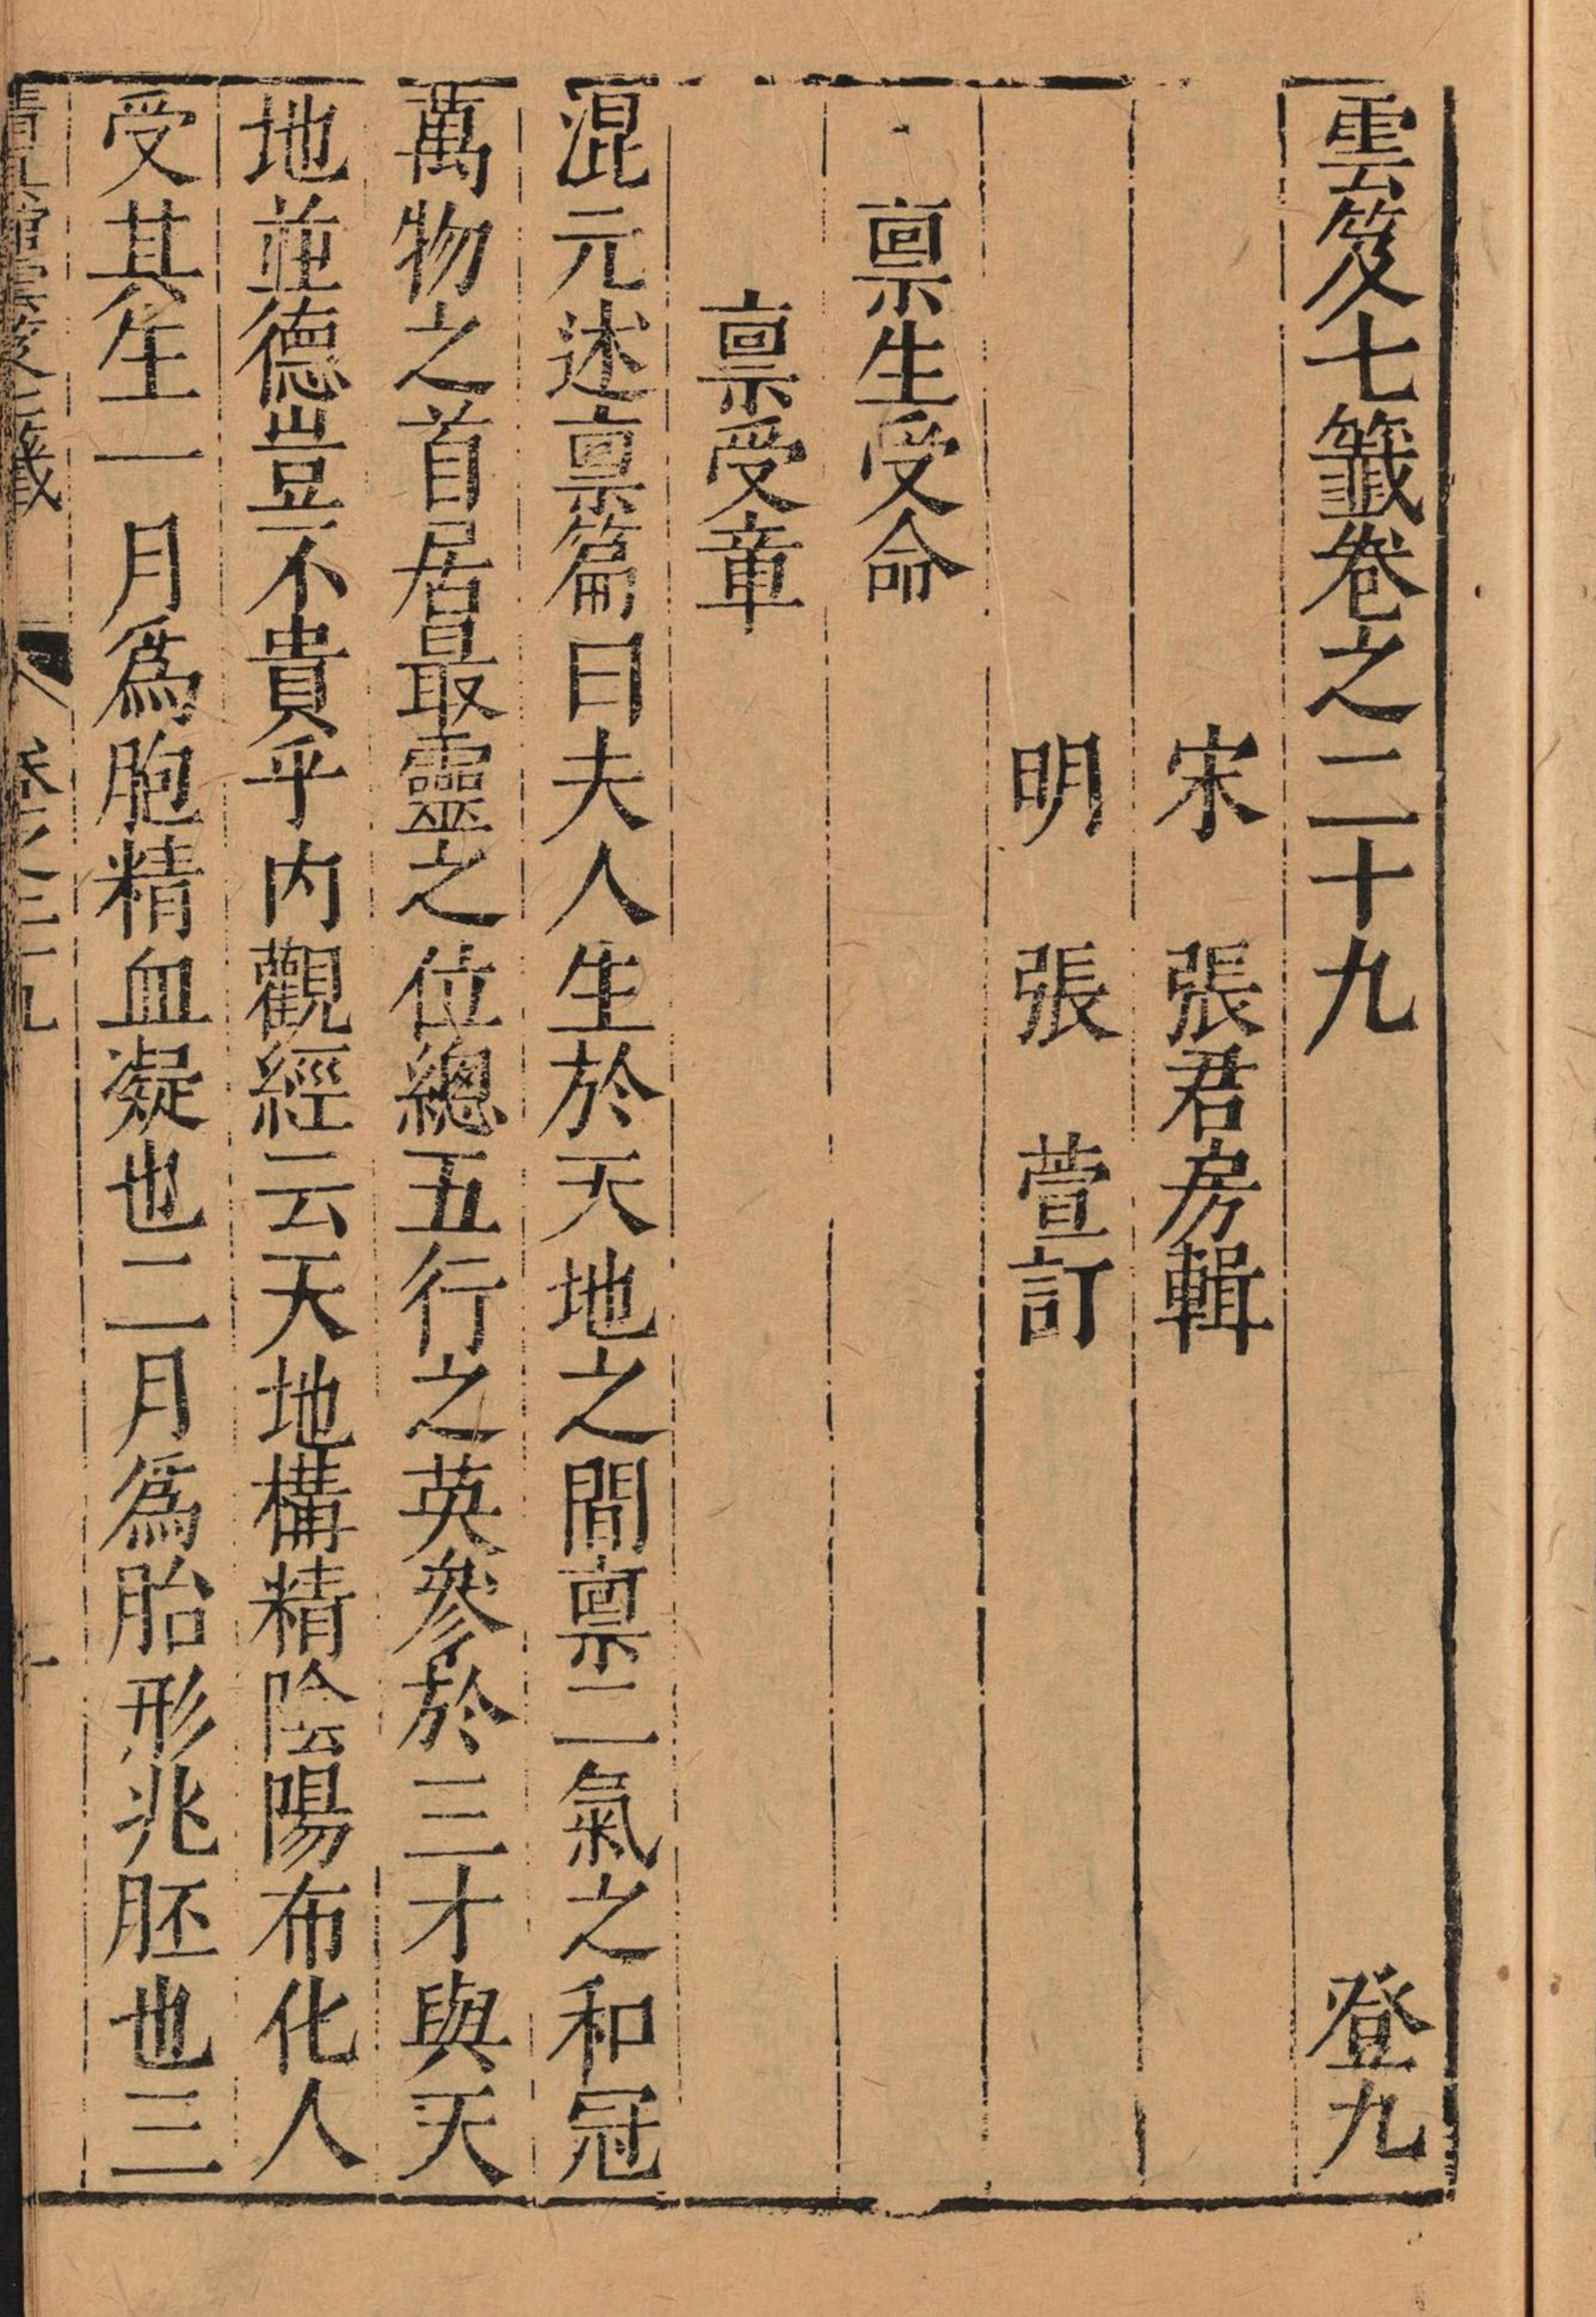 雲笈七籤卷之二十九 登九
宋 張君房輯
明 張 萱訂
禀生受命
禀受章
混元述禀篇曰夫人生於天地之間禀二氣之和冠
萬物之首居最靈之位總五行之英參於三才與天
地並德豈不貴乎内觀經云天地構精陰陽布化人
受其生一月爲胞精血凝也二月爲胎形兆胚也三
清真館雲笈七籤 卷之二十九 一